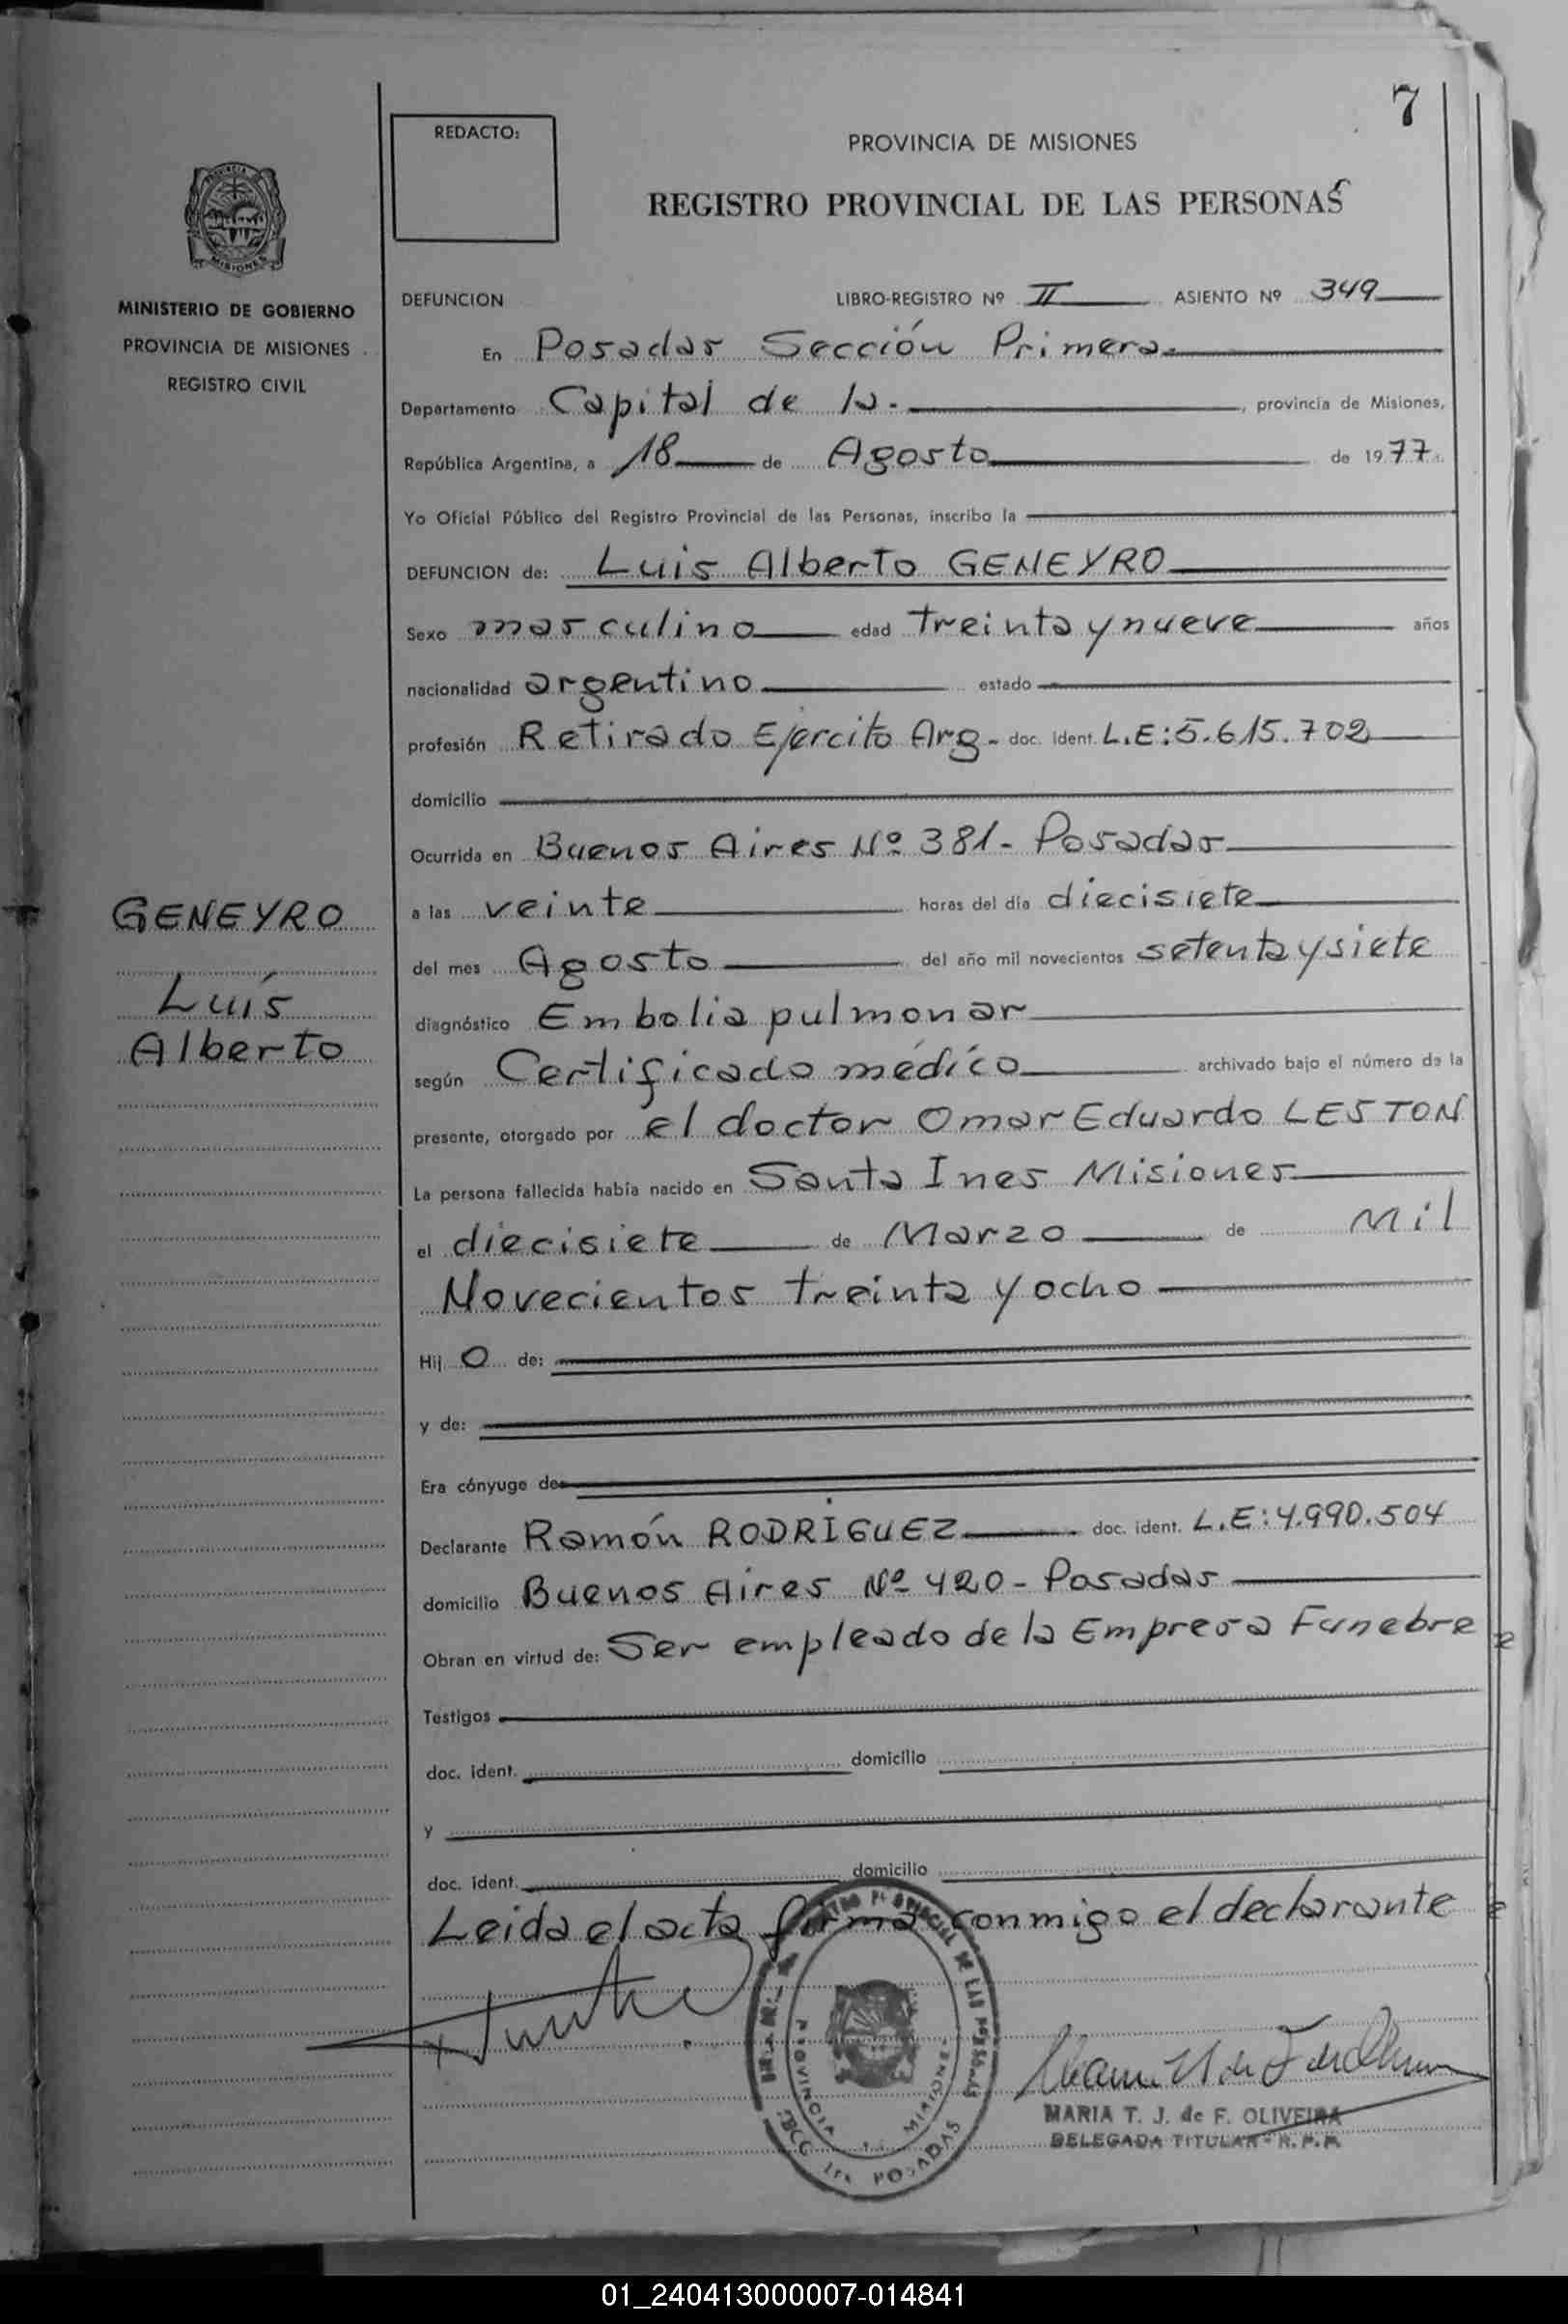 7
REDACTO:
PROVINCIA DE MISIONES
REGISTRO PROVINCIAL DE LAS PERSONAS
MISIONES
MINISTERIO DE GOBIERNO
PROVINCIA DE MISIONES
REGISTRO CIVIL
DEFUNCION LIBRO-REGISTRO Nº II ASIENTO Nº 349
En Posadas Sección Primera
Departamento Capital de la, provincia de Misiones,
República Argentina, a 18 de Agosto de 1977
Yo Oficial Público del Registro Provincial de las Personas, inscribo la
DEFUNCION de: Luis Alberto GENEYRO
Sexo masculino edad treinta y nueve años
nacionalidad argentino estado
profesión Retirado Ejercito Arg- doc. ident. L.E:5.615.702
domicilio
Ocurrida en Buenos Aires Nº 381- Posadas
GENEYRO
Luís
Alberto
a las veinte horas del día diecisiete
del mes Agosto del año mil novecientos setenta y siete
diagnóstico Embolia pulmonar
según Certificado médico archivado bajo el número de la
presente, otorgado por el doctor Omar Eduardo LESTON
La persona fallecida había nacido en Santa Ines Misiones
el diecisiete de Marzo de Mil
Novecientos treinta y ocho
Hij o de:
y de:
Era cónyuge de:
Declarante Ramón RODRIGUEZ doc. ident. L.E:4.990.504
domicilio Buenos Aires Nº 420- Posadas
Obran en virtud de: Ser empleado de la Empresa Funebre
Testigos
doc. ident. domicilio
y
doc. ident. domicilio
Leida el acta firma conmigo el declarante
PROVINCIA MISIONES
POSADAS
MARIA T. J. de F. OLIVEIRA
DELEGADA TITULAR - R. P. P.
01_240413000007-014841